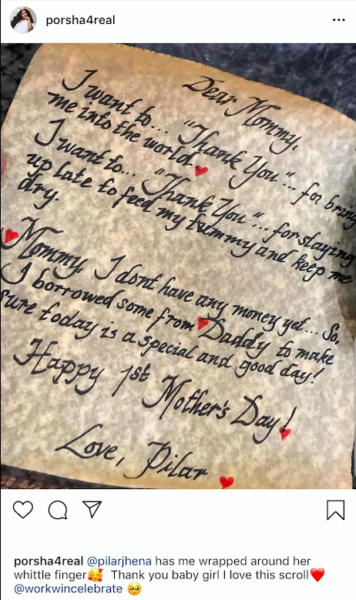 porsha4real
Dear Mommy,
I want to... "Thank You"... for bring
me into the world.
I want to... "Thank You"... for staying
up late to feed my tummy and keep me
dry.
Mommy I dont have any money yet... So,
I borrowed some from Daddy to make
sure today is a special and good day!
Happy 1st Mother's Day!
Love, Pilar
porsha4real @pilarjhena has me wrapped around her
whittle finger🥰 Thank you baby girl I love this scroll❤️
@workwincelebrate 🥺